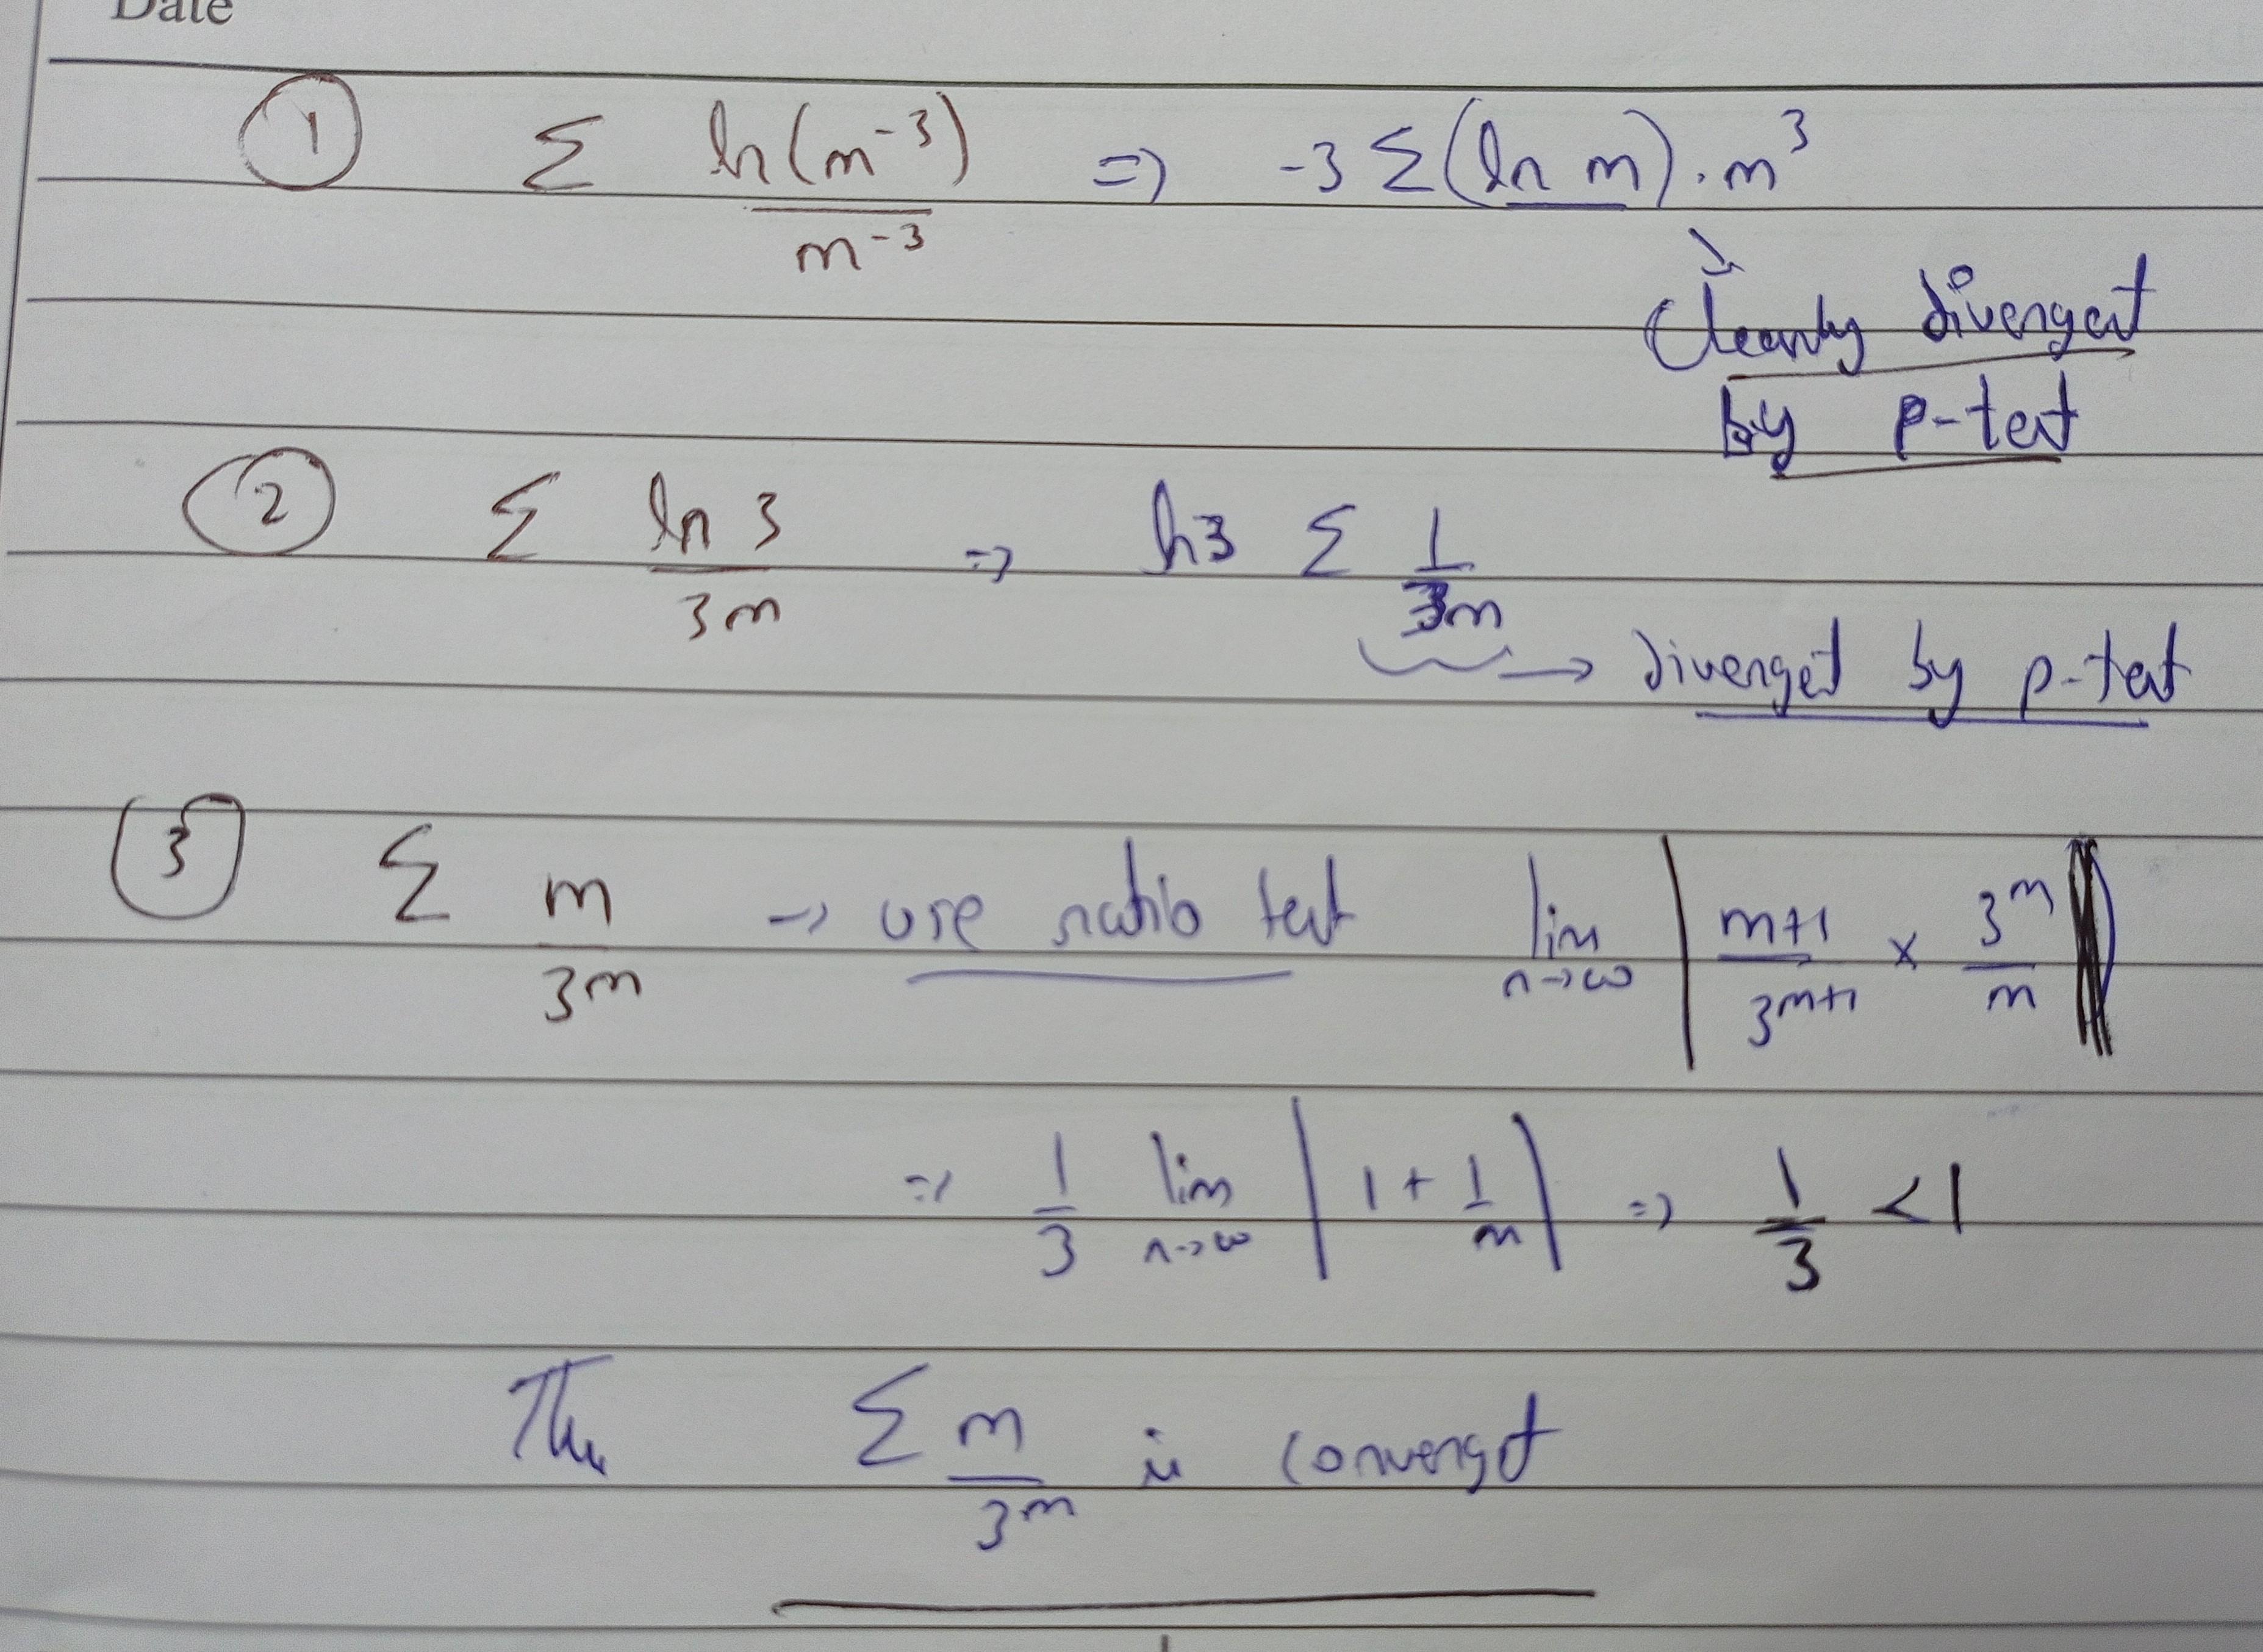 Date
① Σ ln(m⁻³)/m⁻³ => -3 Σ(ln m).m³
Clearly divergent
by p-test
② Σ ln 3/3m => ln3 Σ 1/3m
→ divergent by p-test
③ Σ m/3ᵐ → use ratio test lim n→∞ | m+1/3ᵐ⁺¹ × 3ᵐ/m |
=> 1/3 lim n→∞ | 1 + 1/m | => 1/3 < 1
Σ m/3ᵐ is convergt